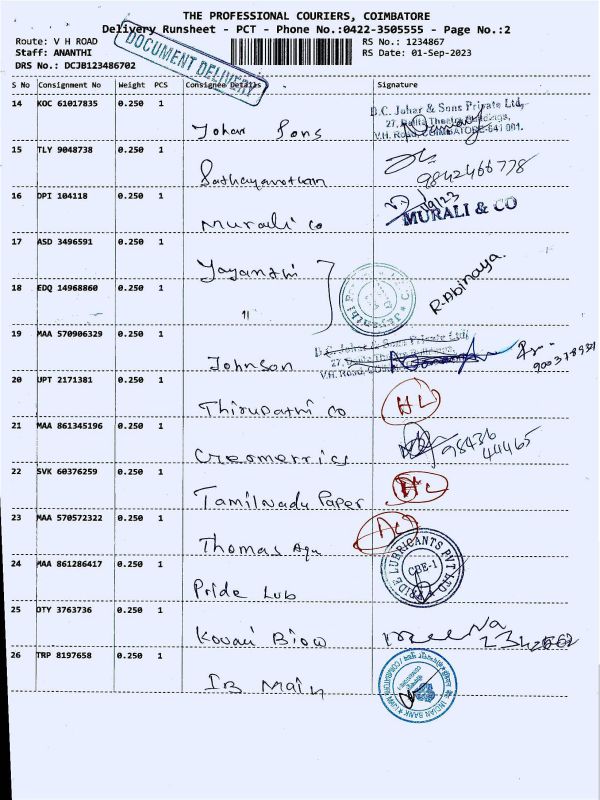 THE PROFESSIONAL COURIERS, COIMBATORE
Delivery Runsheet - PCT - Phone No.:0422-3505555 - Page No.:2
Route: V H ROAD RS No.: 1234867
Staff: ANANTHI RS Date: 01-Sep-2023
DRS No.: DCJB123486702
DOCUMENT DELIVERY
S No Consignment No Weight PCS Consignee Details Signature
14 KOC 61017835 0.250 1
Johar Sons
D.C. Johar & Sons Private Ltd,
V.H. Road, COIMBATORE-641 001.
15 TLY 9048738 0.250 1
9842466778
16 DPI 104118 0.250 1
Murali co
MURALI & CO
17 ASD 3496591 0.250 1
Jayanthi
18 EDQ 14968860 0.250 1
11
R.Abinaya.
19 MAA 570906329 0.250 1
Johnson
D.C. Johar & Sons Private Ltd,
20 UPT 2171381 0.250 1
Thirupathi co
21 MAA 861345196 0.250 1
Creomerrics
98436
44465
22 SVK 60376259 0.250 1
TamilNadu Paper
23 MAA 570572322 0.250 1
Thomas Agu
24 MAA 861286417 0.250 1
Pride Lub
PRIDE LUBRICANTS PVT LTD
CBE-1
25 OTY 3763736 0.250 1
Kovai Biow
Meena
26 TRP 8197658 0.250 1
IB Main
INDIAN BANK